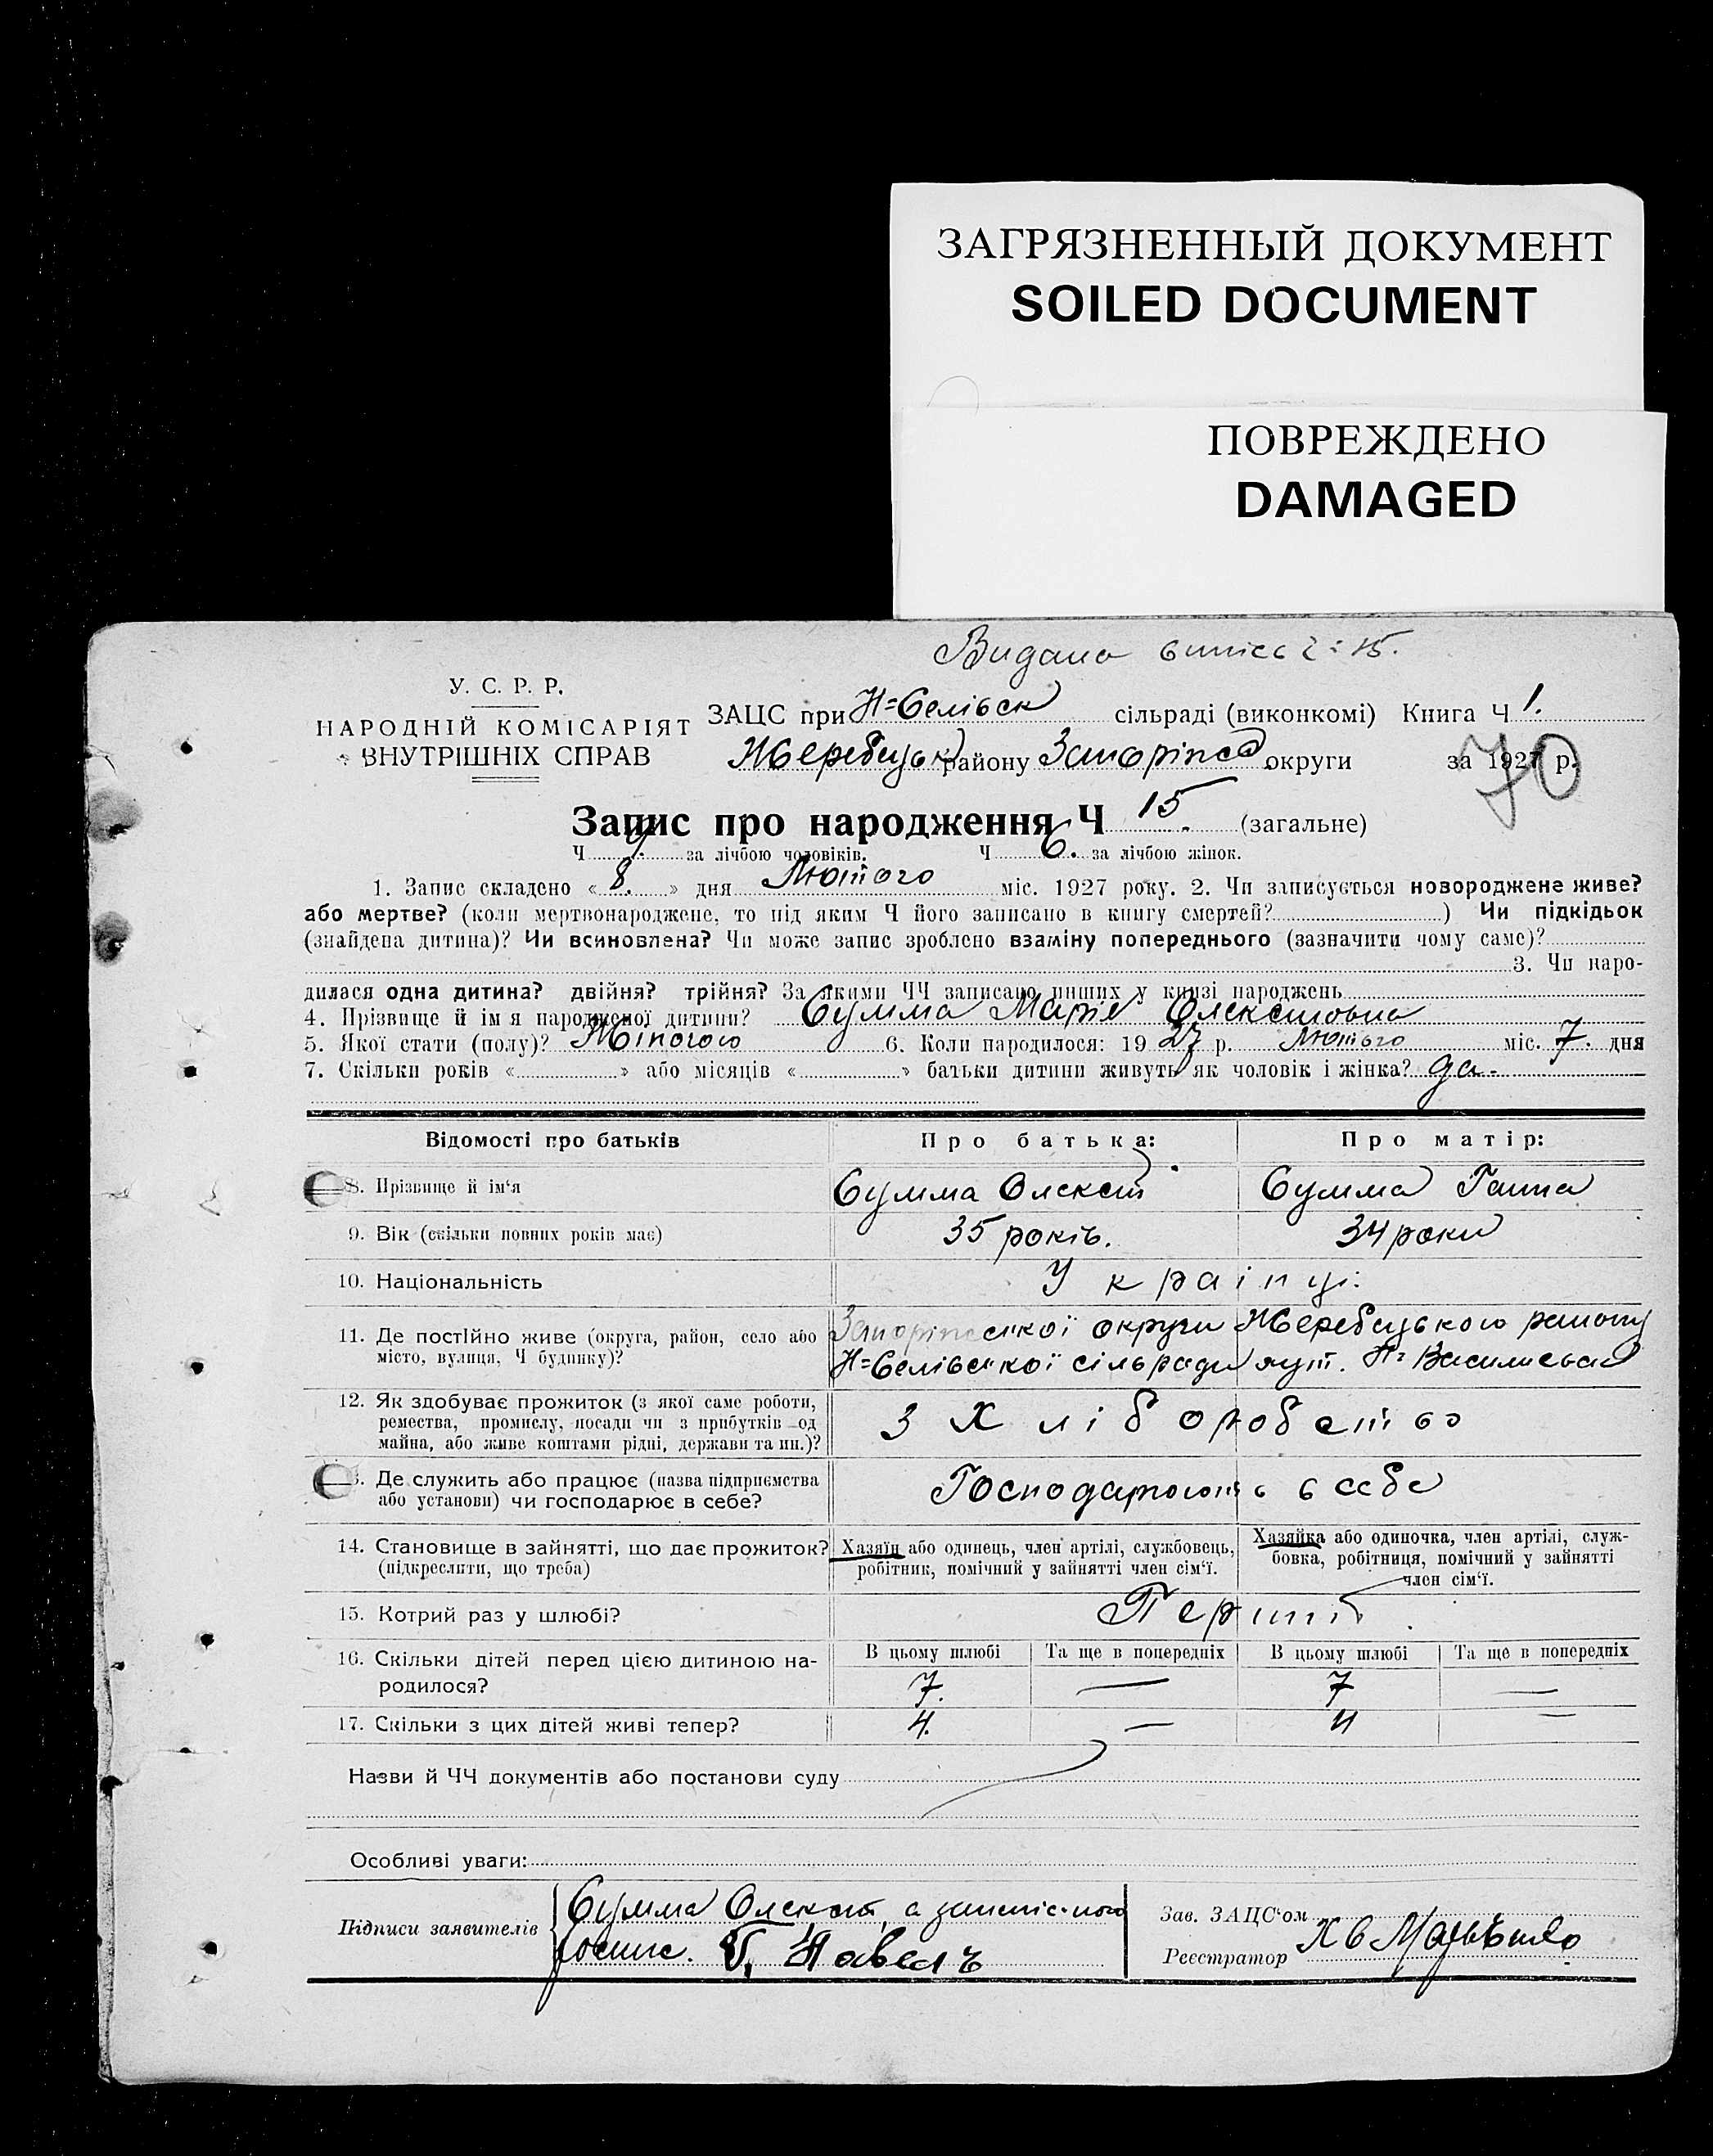 ЗАГРЯЗНЕННЫЙ ДОКУМЕНТ
SOILED DOCUMENT
ПОВРЕЖДЕНО
DAMAGED
Видано випись Ч: 15.
У. С. Р. Р.
НАРОДНІЙ КОМІСАРІЯТ
ВНУТРІШНІХ СПРАВ
ЗАЦС при Н=Селівськ сільраді (виконкомі) Книга Ч 1.
Жеребецьк району Запоріпськ округи за 1927 р.
70
Запис про народження Ч 15. (загальне)
Ч 9. за лічбою чоловіків. Ч 6. за лічбою жінок.
1. Запис складено « 8. » дня Лютого міс. 1927 року. 2. Чи записується новороджене живе?
або мертве? (коли мертвонароджене, то під яким Ч його записано в книгу смертей? ) Чи підкідьок
(знайдена дитина)? Чи всиновлена? Чи може запис зроблено взаміну попереднього (зазначити чому саме)?
3. Чи наро-
дилася одна дитина? двійня? трійня? За якими ЧЧ записано инших у книзі народжень
4. Прізвище й ім я народженої дитини? Сумма Марія Олексіїовна
5. Якої стати (полу)? Жіпочого 6. Коли народилося: 19 27 р. Лютого міс. 7. дня
7. Скільки років « » або місяців « » батьки дитини живуть як чоловік і жінка? да.
Відомості про батьків Про батька: Про матір:
8. Прізвище й ім'я Сумма Олексій Сумма Ганна
9. Вік (скільки повних років має) 35 років. 34 роки
10. Національність Українці
11. Де постійно живе (округа, район, село або місто, вулиця, Ч будинку)? Запоріпської округи Жеребецького району
Н=Селівської сільради хут. Н= Василівка
12. Як здобуває прожиток (з якої саме роботи,
ремества, промислу, посади чи з прибутків од
майна, або живе коштами рідні, держави та ин.)? З Хліборобство
13. Де служить або працює (назва підприємства
або установи) чи господарює в себе? Господарюють в себе
14. Становище в зайнятті, що дає прожиток?
(підкреслити, що треба)
Хазяїн або одинець, член артілі, службовець,
робітник, помічний у зайнятті член сім'ї.
Хазяйка або одиночка, член артілі, служ-
бовка, робітниця, помічний у зайнятті
член сім'ї.
15. Котрий раз у шлюбі? Перший
16. Скільки дітей перед цією дитиною на-
родилося?
В цьому шлюбі Та ще в попередніх В цьому шлюбі Та ще в попередніх
7. — 7 —
17. Скільки з цих дітей живі тепер? 4. — 4 —
Назви й ЧЧ документів або постанови суду
Особливі уваги:
Підписи заявителів Сумма Олексій, а
Павелъ
Зав. ЗАЦС'ом
Реєстратор